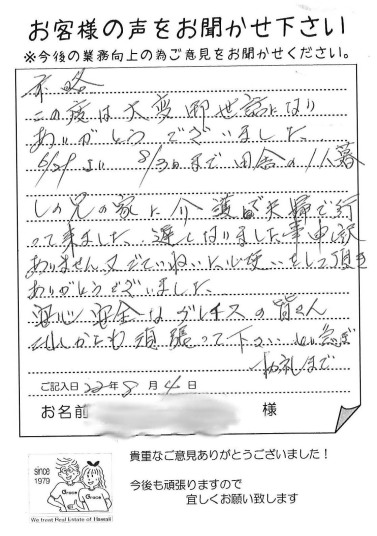 お客様の声をお聞かせ下さい
※今後の業務向上の為ご意見をお聞かせください。
前略
この度は大変御世話になり
ありがとうございました。
6/21より 8/3日まで田舎の1人暮
しの兄の家に介護で夫婦で行
って来ました 遅くなりました事申訳
ありません 又ていねいに心使いをして頂き
ありがとうございました。
安心安全なグレイスの皆さん
これからも頑張って下さい
御礼まで
ご記入日 22年8月4日
お名前 様
since
1979
Grace
Grace
We treat Real Estate of Hawaii
貴重なご意見ありがとうございました！
今後も頑張りますので
宜しくお願い致します